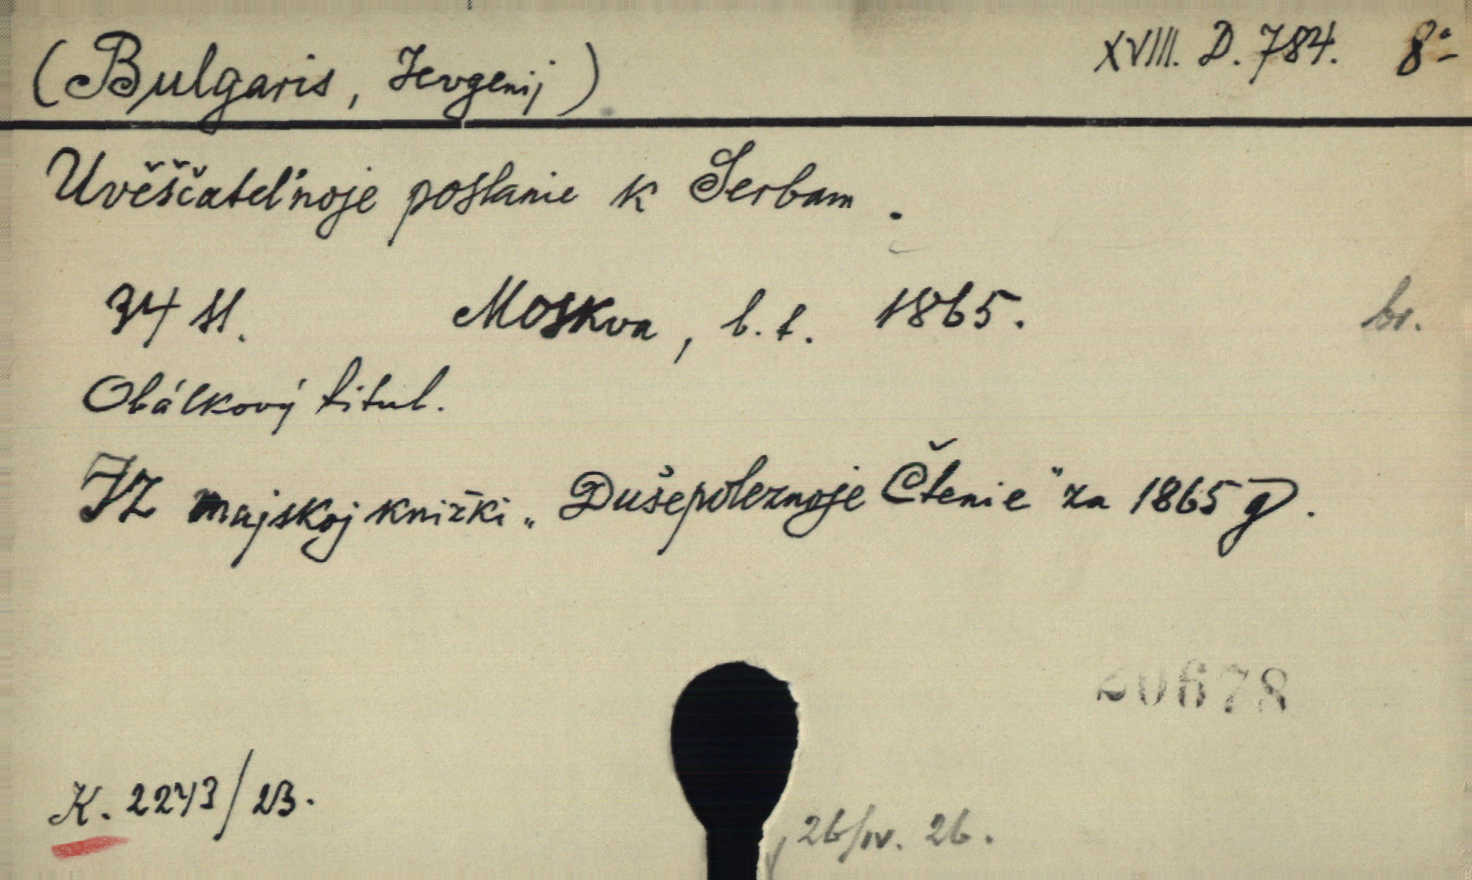 (Bulgaris, Jevgenij) XVIII. D. 784. 8°
Uvěščateľnoje poslanie k Serbam.
34 st. Moskva, b. t. 1865. br.
Obálkový titul.
Iz majskoj knižki „Dušepoleznoje Čtenie" za 1865 g.
20678
K. 2243/23.
26/IV. 26.